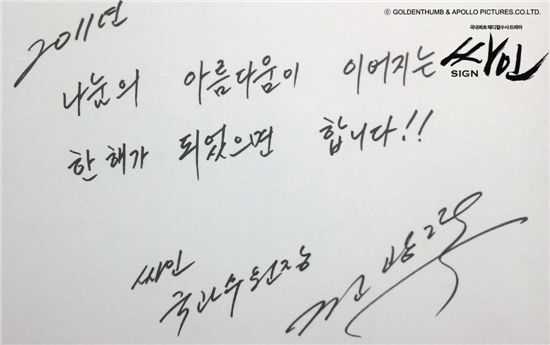 © GOLDENTHUMB & APOLLO PICTURES CO.LTD.
국내최초 메디컬수사 드라마
싸인
SIGN
2011년
나눔의 아름다움이 이어지는
한 해가 되었으면 합니다!!
싸인
국과수 원장